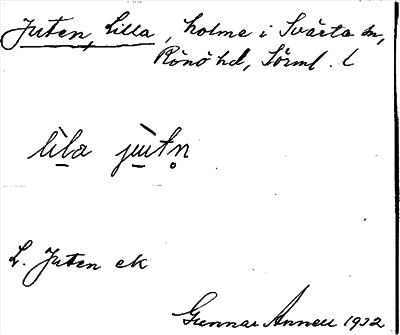 Juten, Lilla, holme i Svärta sn,
Rönö hd, Sörml. l.
lìla jùtn̥
L. Juten ek
Gunnar Annell 1932